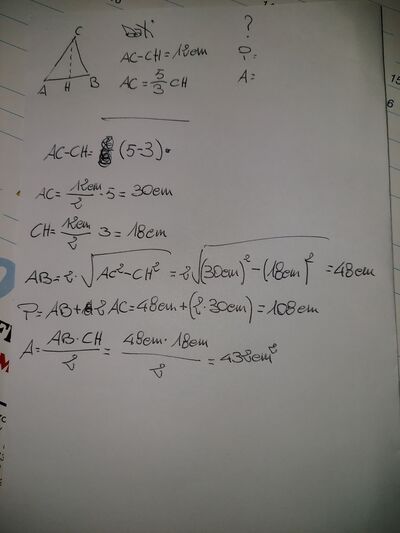 C
Dati
?
AC-CH=12cm
P=
A H B
AC=5/3 CH
A=
AC-CH= (5-3).
AC=12cm/2·5=30cm
CH=12cm/2 3=18cm
AB=2·√AC²-CH²=2√(30cm)²-(18cm)²=48cm
P=AB+2AC=48cm+(2·30cm)=108cm
A=AB·CH/2=48cm·18cm/2=432cm²
15
6